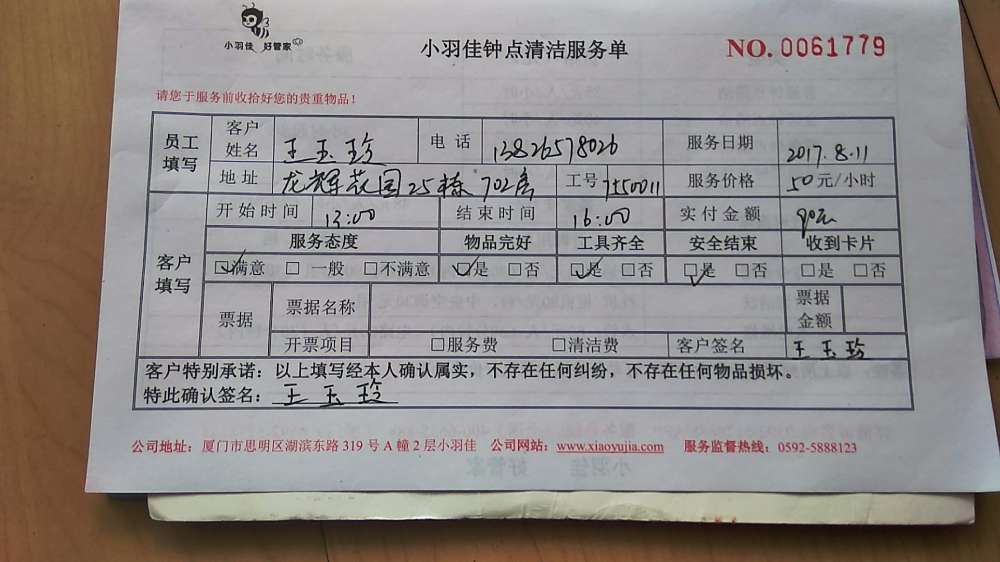 小羽佳 好管家
小羽佳钟点清洁服务单
NO.0061779
请您于服务前收拾好您的贵重物品!
员工填写 客户姓名 王玉玲 电话 13826578026 服务日期 2017.8.11
地址 龙辉花园25栋702房 工号 7550011 服务价格 50元/小时
客户填写 开始时间 13:00 结束时间 16:00 实付金额 90元
服务态度 物品完好 工具齐全 安全结束 收到卡片
☑满意 □一般 □不满意 ☑是 □否 ☑是 □否 ☑是 □否 □是 □否
票据 票据名称 票据金额
开票项目 □服务费 □清洁费 客户签名 王玉玲
客户特别承诺:以上填写经本人确认属实,不存在任何纠纷,不存在任何物品损坏。
特此确认签名:王玉玲
公司地址:厦门市思明区湖滨东路319号A幢2层小羽佳 公司网站:www.xiaoyujia.com 服务监督热线:0592-5888123